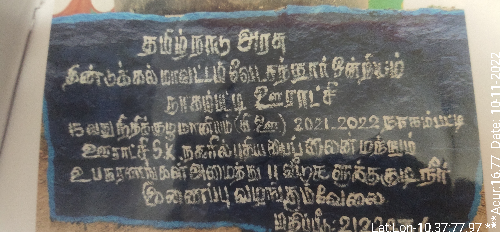 தமிழ்நாடு அரசு
திண்டுக்கல் மாவட்டம் வேடசந்தூர் ஒன்றியம்
நாகம்பட்டி ஊராட்சி
15வது நிதிக்குழு மானியம் 2021-2022 நாகம்பட்டி
ஊராட்சி S.K. நகரில் புதிய பைப்லைன் மற்றும்
உபகரணங்கள் அமைத்து 11 வீடுகளுக்கு குடிநீர்
இணைப்பு வழங்கும் வேலை
மதிப்பீடு:
LatLon-10.37,77.97
***Acur16.77 Date: